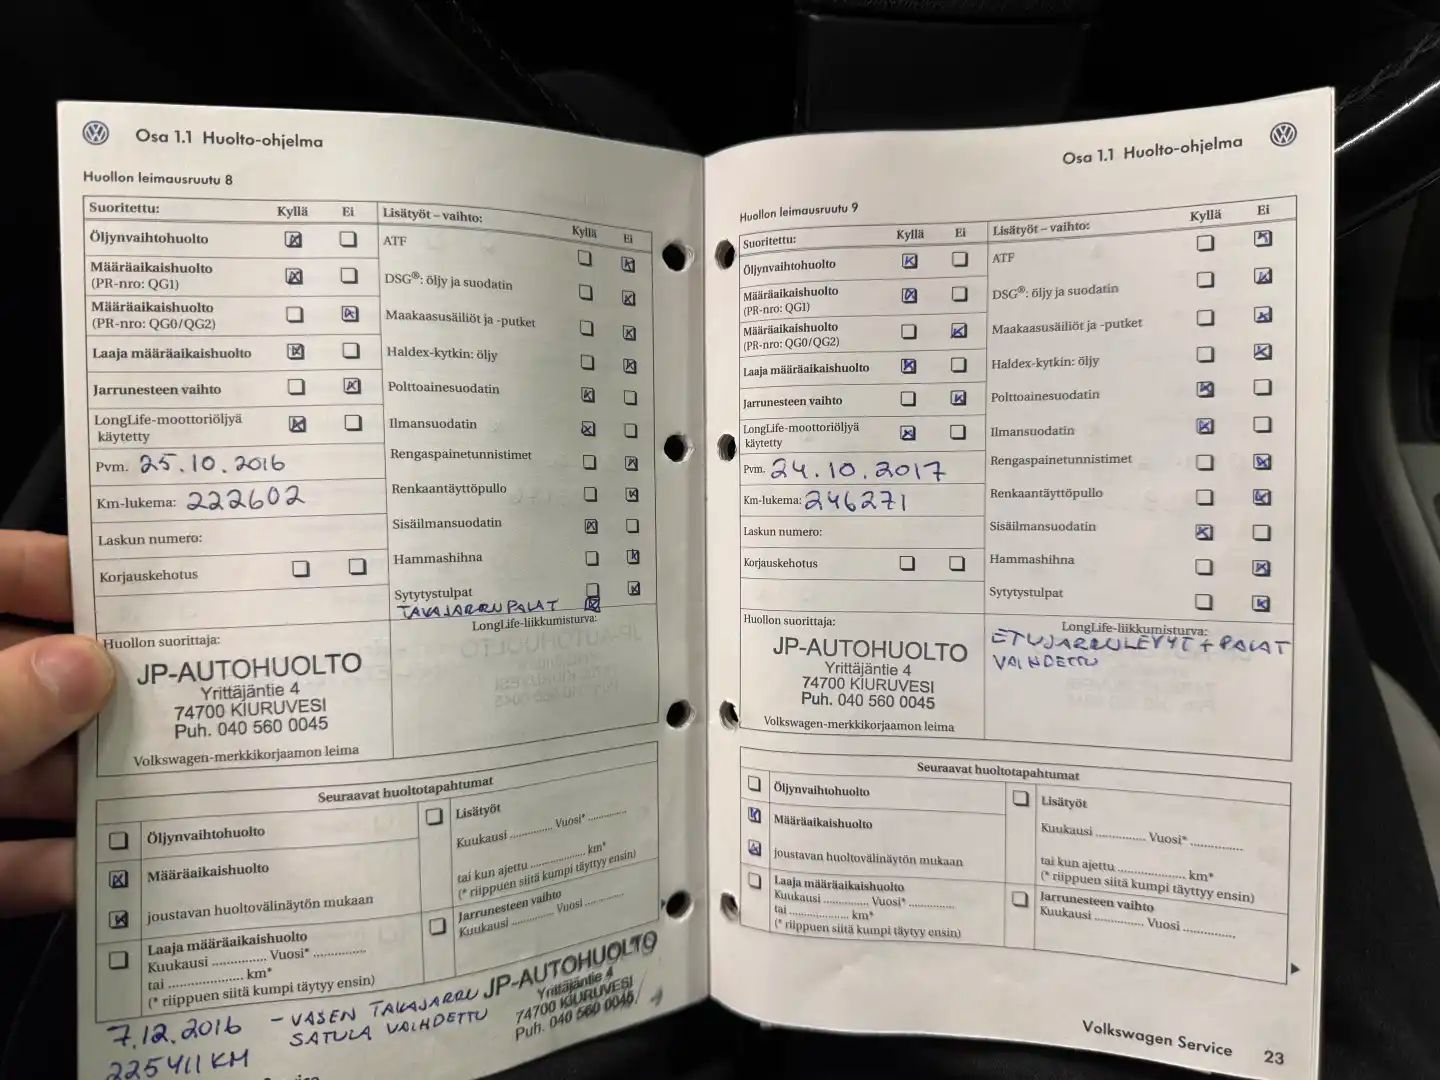 Osa 1.1 Huolto-ohjelma
Huollon leimausruutu 8
Suoritettu: Kyllä Ei
Öljynvaihtohuolto
Määräaikaishuolto
(PR-nro: QG1)
Määräaikaishuolto
(PR-nro: QG0/QG2)
Laaja määräaikaishuolto
Jarrunesteen vaihto
LongLife-moottoriöljyä
käytetty
Pvm. 25.10.2016
Km-lukema: 222602
Laskun numero:
Korjauskehotus
Lisätyöt – vaihto: Kyllä Ei
ATF
DSG®: öljy ja suodatin
Maakaasusäiliöt ja -putket
Haldex-kytkin: öljy
Polttoainesuodatin
Ilmansuodatin
Rengaspainetunnistimet
Renkaantäyttöpullo
Sisäilmansuodatin
Hammashihna
Sytytystulpat
TAKAJARRUPALAT
Huollon suorittaja:
JP-AUTOHUOLTO
Yrittäjäntie 4
74700 KIURUVESI
Puh. 040 560 0045
Volkswagen-merkkikorjaamon leima
LongLife-liikkumisturva:
Seuraavat huoltotapahtumat
Öljynvaihtohuolto
Määräaikaishuolto
joustavan huoltovälinäytön mukaan
Laaja määräaikaishuolto
Kuukausi .............. Vuosi* ..............
tai .................... km*
(* riippuen siitä kumpi täyttyy ensin)
Lisätyöt
Kuukausi .............. Vuosi* ..............
tai kun ajettu .................... km*
(* riippuen siitä kumpi täyttyy ensin)
Jarrunesteen vaihto
Kuukausi .............. Vuosi ..............
7.12.2016 - VASEN TAKAJARRU
SATULA VAIHDETTU
225411 KM
JP-AUTOHUOLTO
Yrittäjäntie 4
74700 KIURUVESI
Puh. 040 560 0045
Osa 1.1 Huolto-ohjelma
Huollon leimausruutu 9
Suoritettu: Kyllä Ei
Öljynvaihtohuolto
Määräaikaishuolto
(PR-nro: QG1)
Määräaikaishuolto
(PR-nro: QG0/QG2)
Laaja määräaikaishuolto
Jarrunesteen vaihto
LongLife-moottoriöljyä
käytetty
Pvm. 24.10.2017
Km-lukema: 246271
Laskun numero:
Korjauskehotus
Lisätyöt – vaihto: Kyllä Ei
ATF
DSG®: öljy ja suodatin
Maakaasusäiliöt ja -putket
Haldex-kytkin: öljy
Polttoainesuodatin
Ilmansuodatin
Rengaspainetunnistimet
Renkaantäyttöpullo
Sisäilmansuodatin
Hammashihna
Sytytystulpat
Huollon suorittaja:
JP-AUTOHUOLTO
Yrittäjäntie 4
74700 KIURUVESI
Puh. 040 560 0045
Volkswagen-merkkikorjaamon leima
LongLife-liikkumisturva:
ETUJARRULEVYT + PALAT
VAIHDETTU
Seuraavat huoltotapahtumat
Öljynvaihtohuolto
Määräaikaishuolto
joustavan huoltovälinäytön mukaan
Laaja määräaikaishuolto
Kuukausi .............. Vuosi* ..............
tai .................... km*
(* riippuen siitä kumpi täyttyy ensin)
Lisätyöt
Kuukausi .............. Vuosi* ..............
tai kun ajettu .................... km*
(* riippuen siitä kumpi täyttyy ensin)
Jarrunesteen vaihto
Kuukausi .............. Vuosi ..............
Volkswagen Service 23